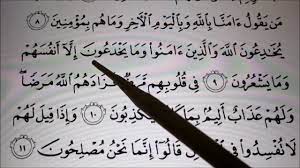 مَن يَقُولُ ءَامَنَّا بِٱللَّهِ وَبِٱلْيَوْمِ ٱلْءَاخِرِ وَمَا هُم بِمُؤْمِنِينَ ٨
يُخَٰدِعُونَ ٱللَّهَ وَٱلَّذِينَ ءَامَنُوا۟ وَمَا يَخْدَعُونَ إِلَّآ أَنفُسَهُمْ
وَمَا يَشْعُرُونَ ٩ فِى قُلُوبِهِم فَزَادَهُمُ ٱللَّهُ مَرَضًا
وَلَهُمْ عَذَابٌ أَلِيمٌۢ بِمَا يَكْذِبُونَ ١٠ وَإِذَا قِيلَ لَهُمْ
لَا تُفْسِدُوا۟ فِى قَالُوٓا۟ إِنَّمَا نَحْنُ مُصْلِحُونَ ١١